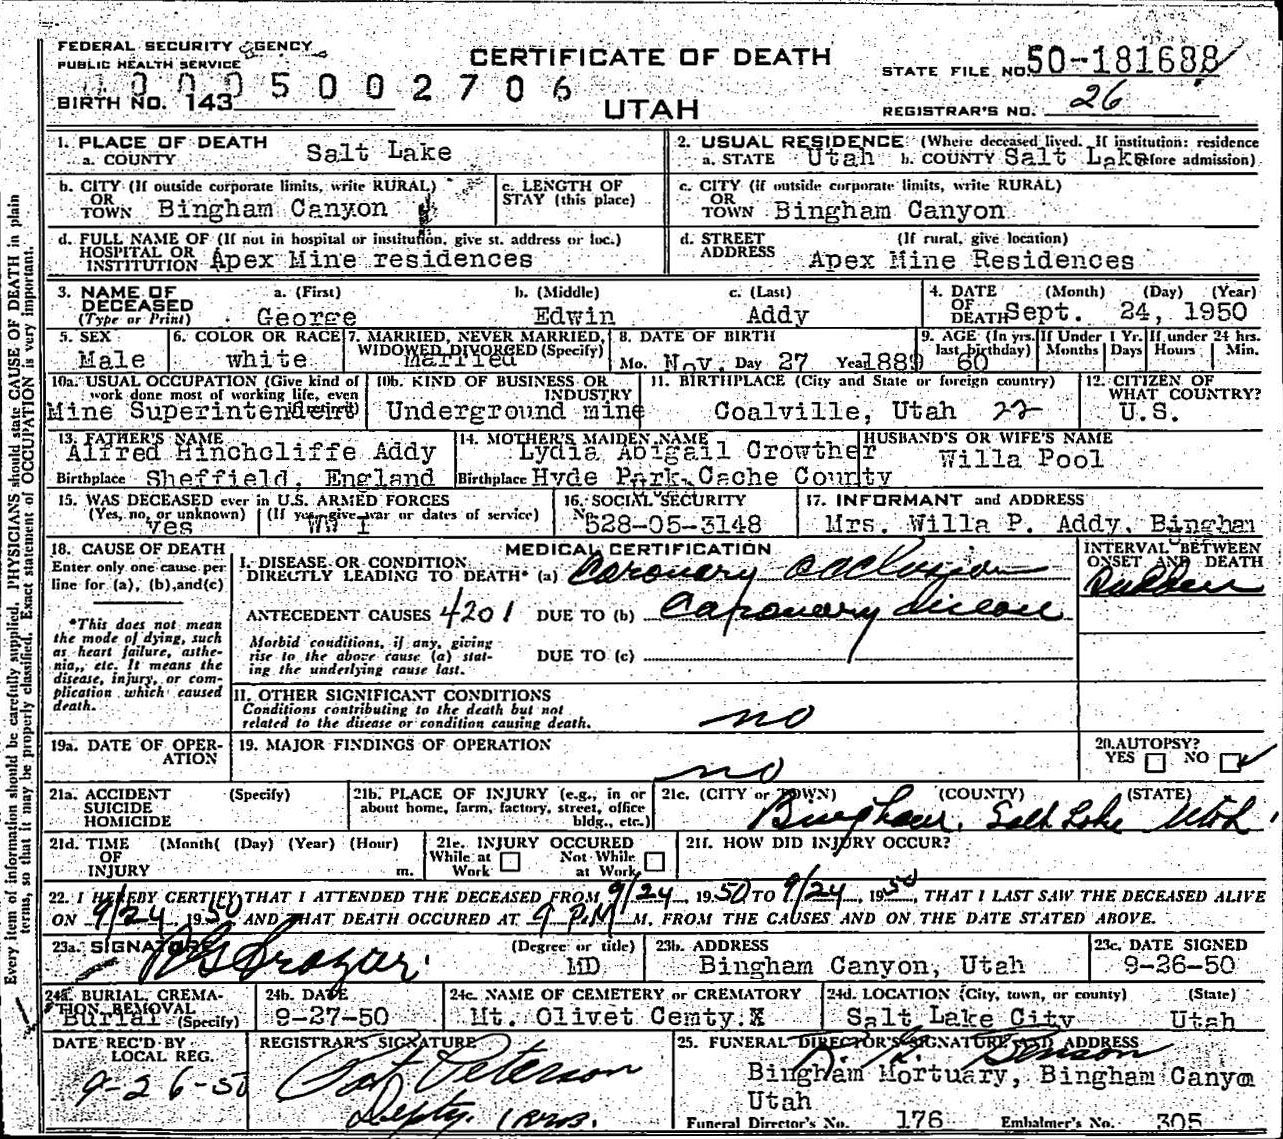 FEDERAL SECURITY AGENCY
PUBLIC HEALTH SERVICE
CERTIFICATE OF DEATH
STATE FILE NO. 50-181688
0005002706
BIRTH NO. 143
UTAH
REGISTRAR'S NO. 26
1. PLACE OF DEATH
a. COUNTY Salt Lake
2. USUAL RESIDENCE (Where deceased lived. If institution: residence before admission)
a. STATE Utah b. COUNTY Salt Lake
b. CITY (If outside corporate limits, write RURAL)
OR
TOWN Bingham Canyon
c. LENGTH OF
STAY (this place)
c. CITY (if outside corporate limits, write RURAL)
OR
TOWN Bingham Canyon
d. FULL NAME OF (If not in hospital or institution, give st. address or loc.)
HOSPITAL OR
INSTITUTION Apex Mine residences
d. STREET (If rural, give location)
ADDRESS Apex Mine Residences
3. NAME OF DECEASED
(Type or Print)
a. (First) b. (Middle) c. (Last)
George Edwin Addy
4. DATE (Month) (Day) (Year)
OF
DEATH Sept. 24, 1950
5. SEX
Male
6. COLOR OR RACE
white
7. MARRIED, NEVER MARRIED,
WIDOWED DIVORCED (Specify)
Married
8. DATE OF BIRTH
Mo. Nov. Day 27 Year 1889
9. AGE (In yrs. last birthday)
60
If Under 1 Yr.
Months Days
If under 24 hrs.
Hours Min.
10a. USUAL OCCUPATION (Give kind of
work done most of working life, even
Mine Superintendent
10b. KIND OF BUSINESS OR
INDUSTRY
Underground mine
11. BIRTHPLACE (City and State or foreign country)
Coalville, Utah 22
12. CITIZEN OF
WHAT COUNTRY?
U.S.
13. FATHER'S NAME
Alfred Hinchcliffe Addy
Birthplace Sheffield, England
14. MOTHER'S MAIDEN NAME
Lydia Abigail Crowther
Birthplace Hyde Park, Cache County
HUSBAND'S OR WIFE'S NAME
Willa Pool
15. WAS DECEASED ever in U.S. ARMED FORCES
(Yes, no, or unknown) (If yes, give war or dates of service)
Yes WW I
16. SOCIAL SECURITY
No. 528-05-3148
17. INFORMANT and ADDRESS
Mrs. Willa P. Addy, Bingham
18. CAUSE OF DEATH
Enter only one cause per
line for (a), (b), and (c)
*This does not mean
the mode of dying, such
as heart failure, asthe-
nia,, etc. It means the
disease, injury, or com-
plication which caused
death.
MEDICAL CERTIFICATION
I. DISEASE OR CONDITION
DIRECTLY LEADING TO DEATH* (a) Coronary occlusion
INTERVAL BETWEEN
ONSET AND DEATH
Sudden
ANTECEDENT CAUSES 4201 DUE TO (b) Coronary disease
Morbid conditions, if any, giving
rise to the above cause (a) stat-
ing the underlying cause last.
DUE TO (c)
II. OTHER SIGNIFICANT CONDITIONS
Conditions contributing to the death but not
related to the disease or condition causing death.
no
19a. DATE OF OPER-
ATION
19. MAJOR FINDINGS OF OPERATION
no
20. AUTOPSY?
YES NO ✓
21a. ACCIDENT (Specify)
SUICIDE
HOMICIDE
21b. PLACE OF INJURY (e.g., in or
about home, farm, factory, street, office
bldg., etc.)
21c. (CITY or TOWN) (COUNTY) (STATE)
Bingham, Salt Lake Utah
21d. TIME (Month( (Day) (Year) (Hour)
OF
INJURY m.
21e. INJURY OCCURED
While at Work Not While at Work
21f. HOW DID INJURY OCCUR?
22. I HEREBY CERTIFY THAT I ATTENDED THE DECEASED FROM 9/24, 1950 TO 9/24, 1950, THAT I LAST SAW THE DECEASED ALIVE
ON 9/24 1950 AND THAT DEATH OCCURED AT 9 P.M M. FROM THE CAUSES AND ON THE DATE STATED ABOVE.
23a. SIGNATURE (Degree or title)
MD
23b. ADDRESS
Bingham Canyon, Utah
23c. DATE SIGNED
9-26-50
24a. BURIAL, CREMA-
TION REMOVAL
Burial (Specify)
24b. DATE
9-27-50
24c. NAME OF CEMETERY or CREMATORY
Mt. Olivet Cemty.X
24d. LOCATION (City, town, or county) (State)
Salt Lake City Utah
DATE REC'D BY
LOCAL REG.
9-26-50
REGISTRAR'S SIGNATURE
Pat Peterson
Depty.
25. FUNERAL DIRECTOR'S SIGNATURE AND ADDRESS
Benson
Bingham Mortuary, Bingham Canyo
Utah
Funeral Director's No. 176 Embalmer's No. 305
Every item of information should be carefully supplied. PHYSICIANS should state CAUSE OF DEATH in plain
terms, so that it may be properly classified. Exact statement of OCCUPATION is very important.